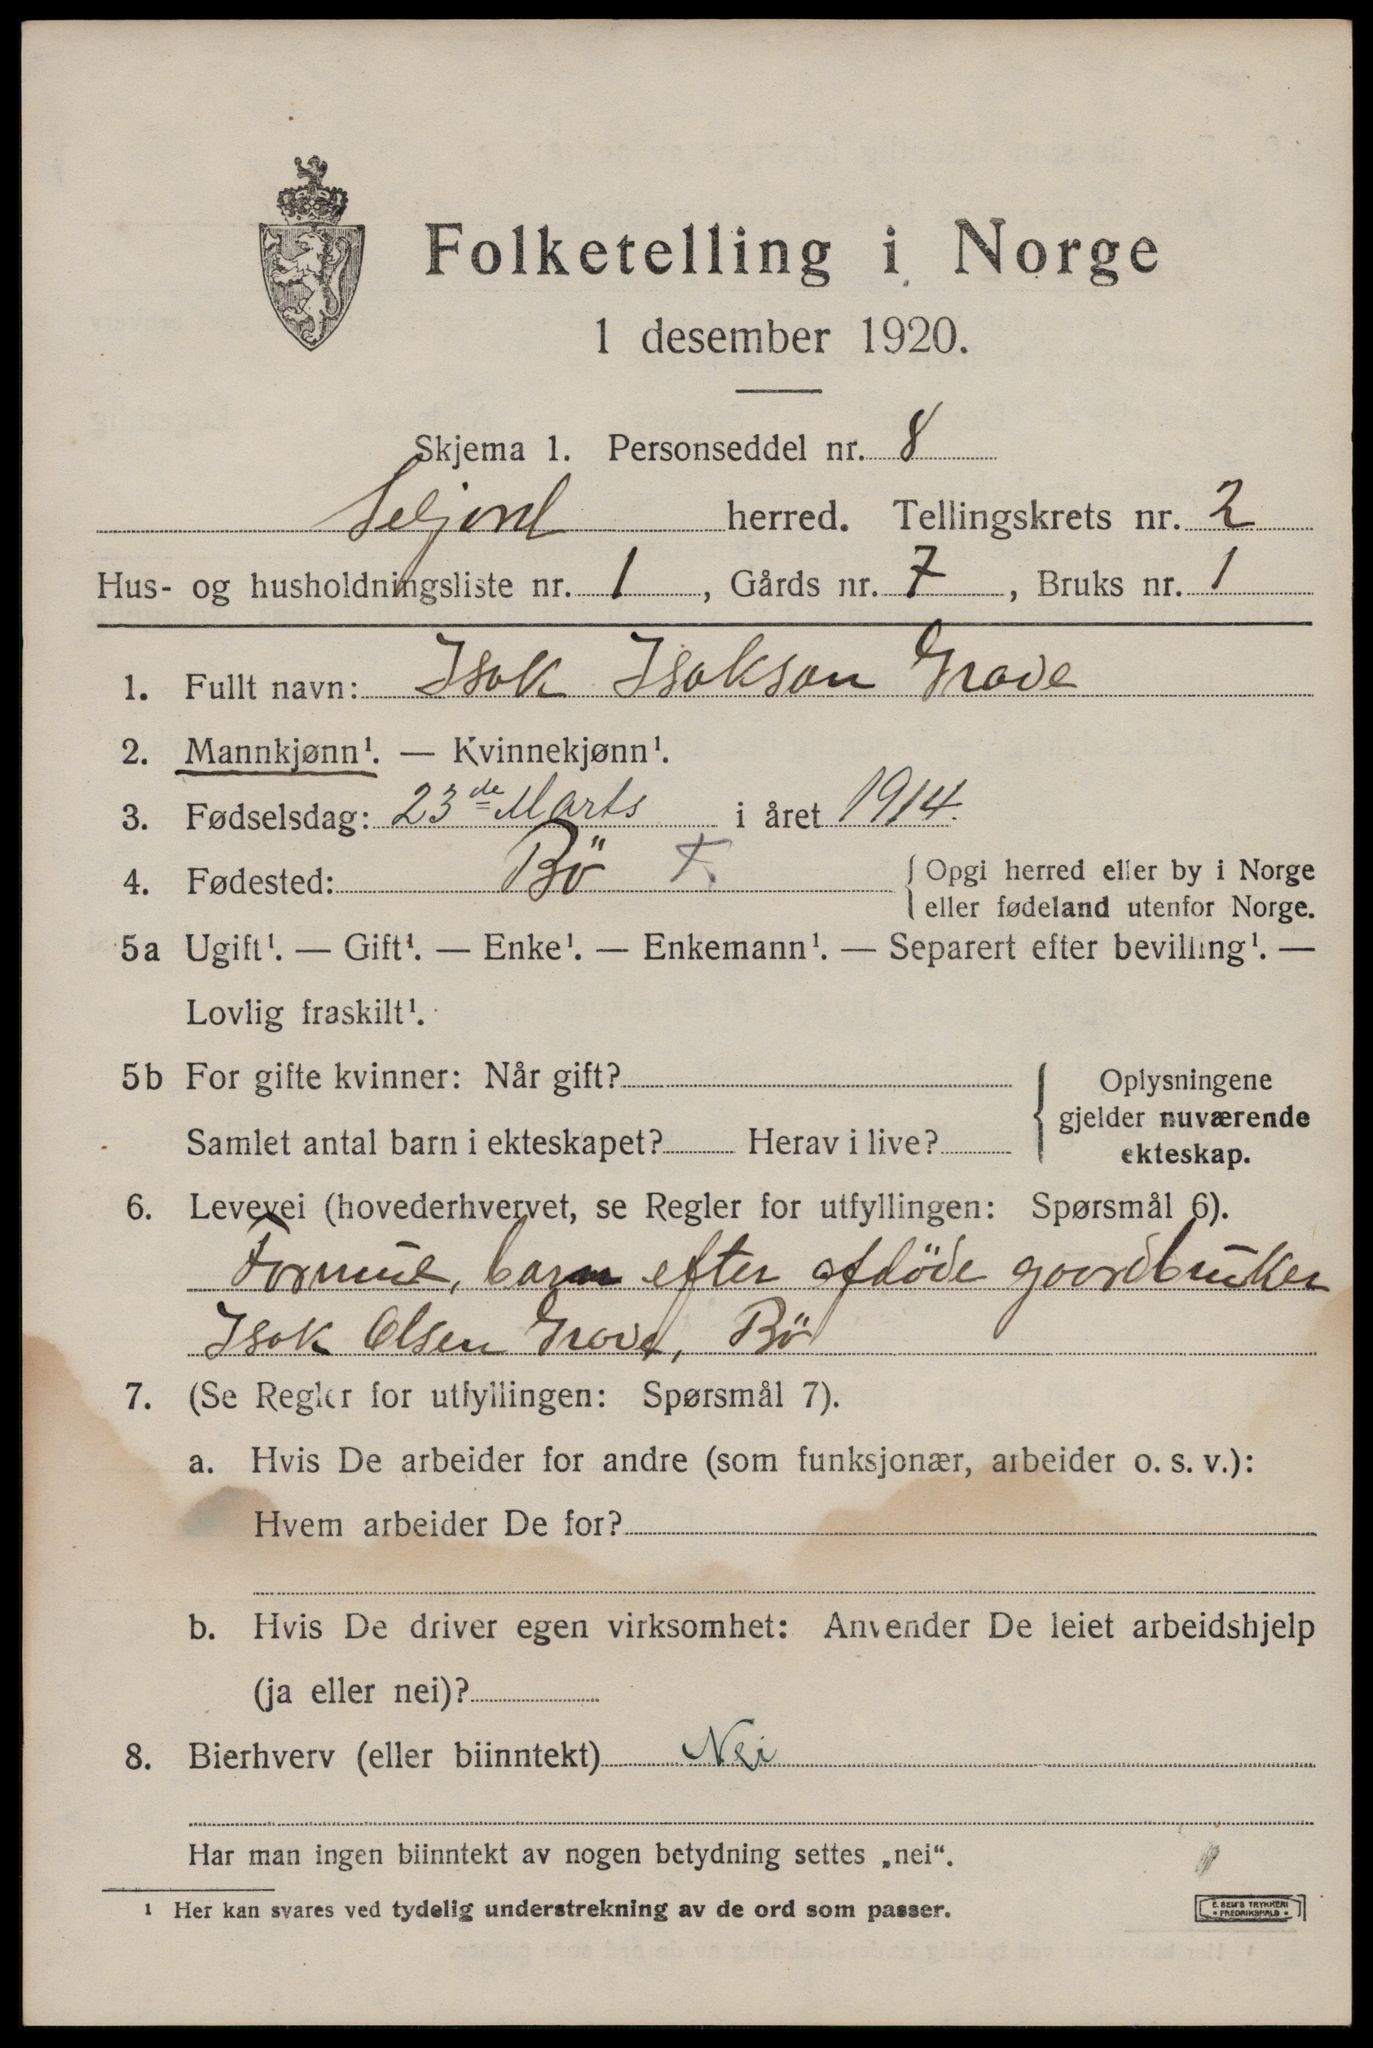 Folketelling i Norge
1 desember 1920.
Skjema 1. Personseddel nr. 8
Seljord herred. Tellingskrets nr. 2
Hus- og husholdningsliste nr. 1, Gårds nr. 7, Bruks nr. 1
1. Fullt navn: Isak Isakson Grave
2. Mannkjønn¹. — Kvinnekjønn¹.
3. Fødselsdag: 23de Marts i året 1914.
4. Fødested: Bö T. { Opgi herred eller by i Norge
eller fødeland utenfor Norge.
5a Ugift¹. — Gift¹. — Enke¹. — Enkemann¹. — Separert efter bevilling¹. —
Lovlig fraskilt¹.
5b For gifte kvinner: Når gift? { Oplysningene
gjelder nuværende
Samlet antal barn i ekteskapet? Herav i live? ekteskap.
6. Levevei (hovederhvervet, se Regler for utfyllingen: Spørsmål 6).
Formue, barn efter afdöde gaardbruker
Isak Olsen Grave, Bö
7. (Se Regler for utfyllingen: Spørsmål 7).
a. Hvis De arbeider for andre (som funksjonær, arbeider o. s. v.):
Hvem arbeider De for?
b. Hvis De driver egen virksomhet: Anvender De leiet arbeidshjelp
(ja eller nei)?
8. Bierhverv (eller biinntekt) Nei
Har man ingen biinntekt av nogen betydning settes „nei“.
¹ Her kan svares ved tydelig understrekning av de ord som passer.
E. SEM'S TRYKKERI
• FREDRIKSHALD •